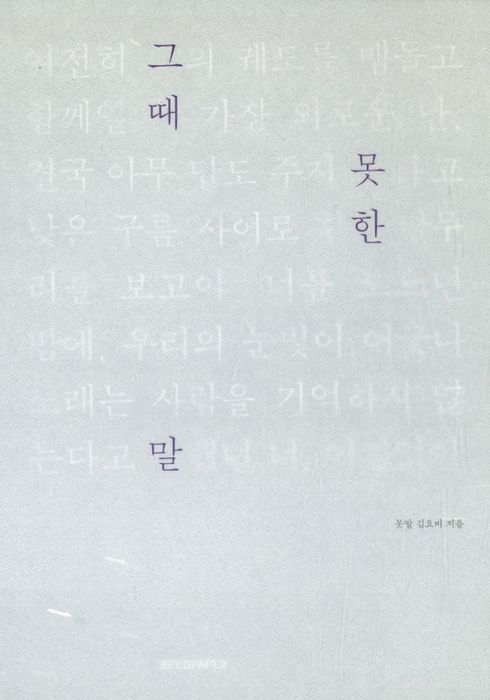 여전히 그 의 궤도를 맴돌고
함께일 때 가장 외로운
결국 아무 답도 주지 못
낮은 구름 사이로 한
리를 보고야 너를
밤에, 우리의 눈빛이 어긋나
노래는 사람을 기억하지 않
는다고 말
못말 김요비 지음
SEEDPAPER